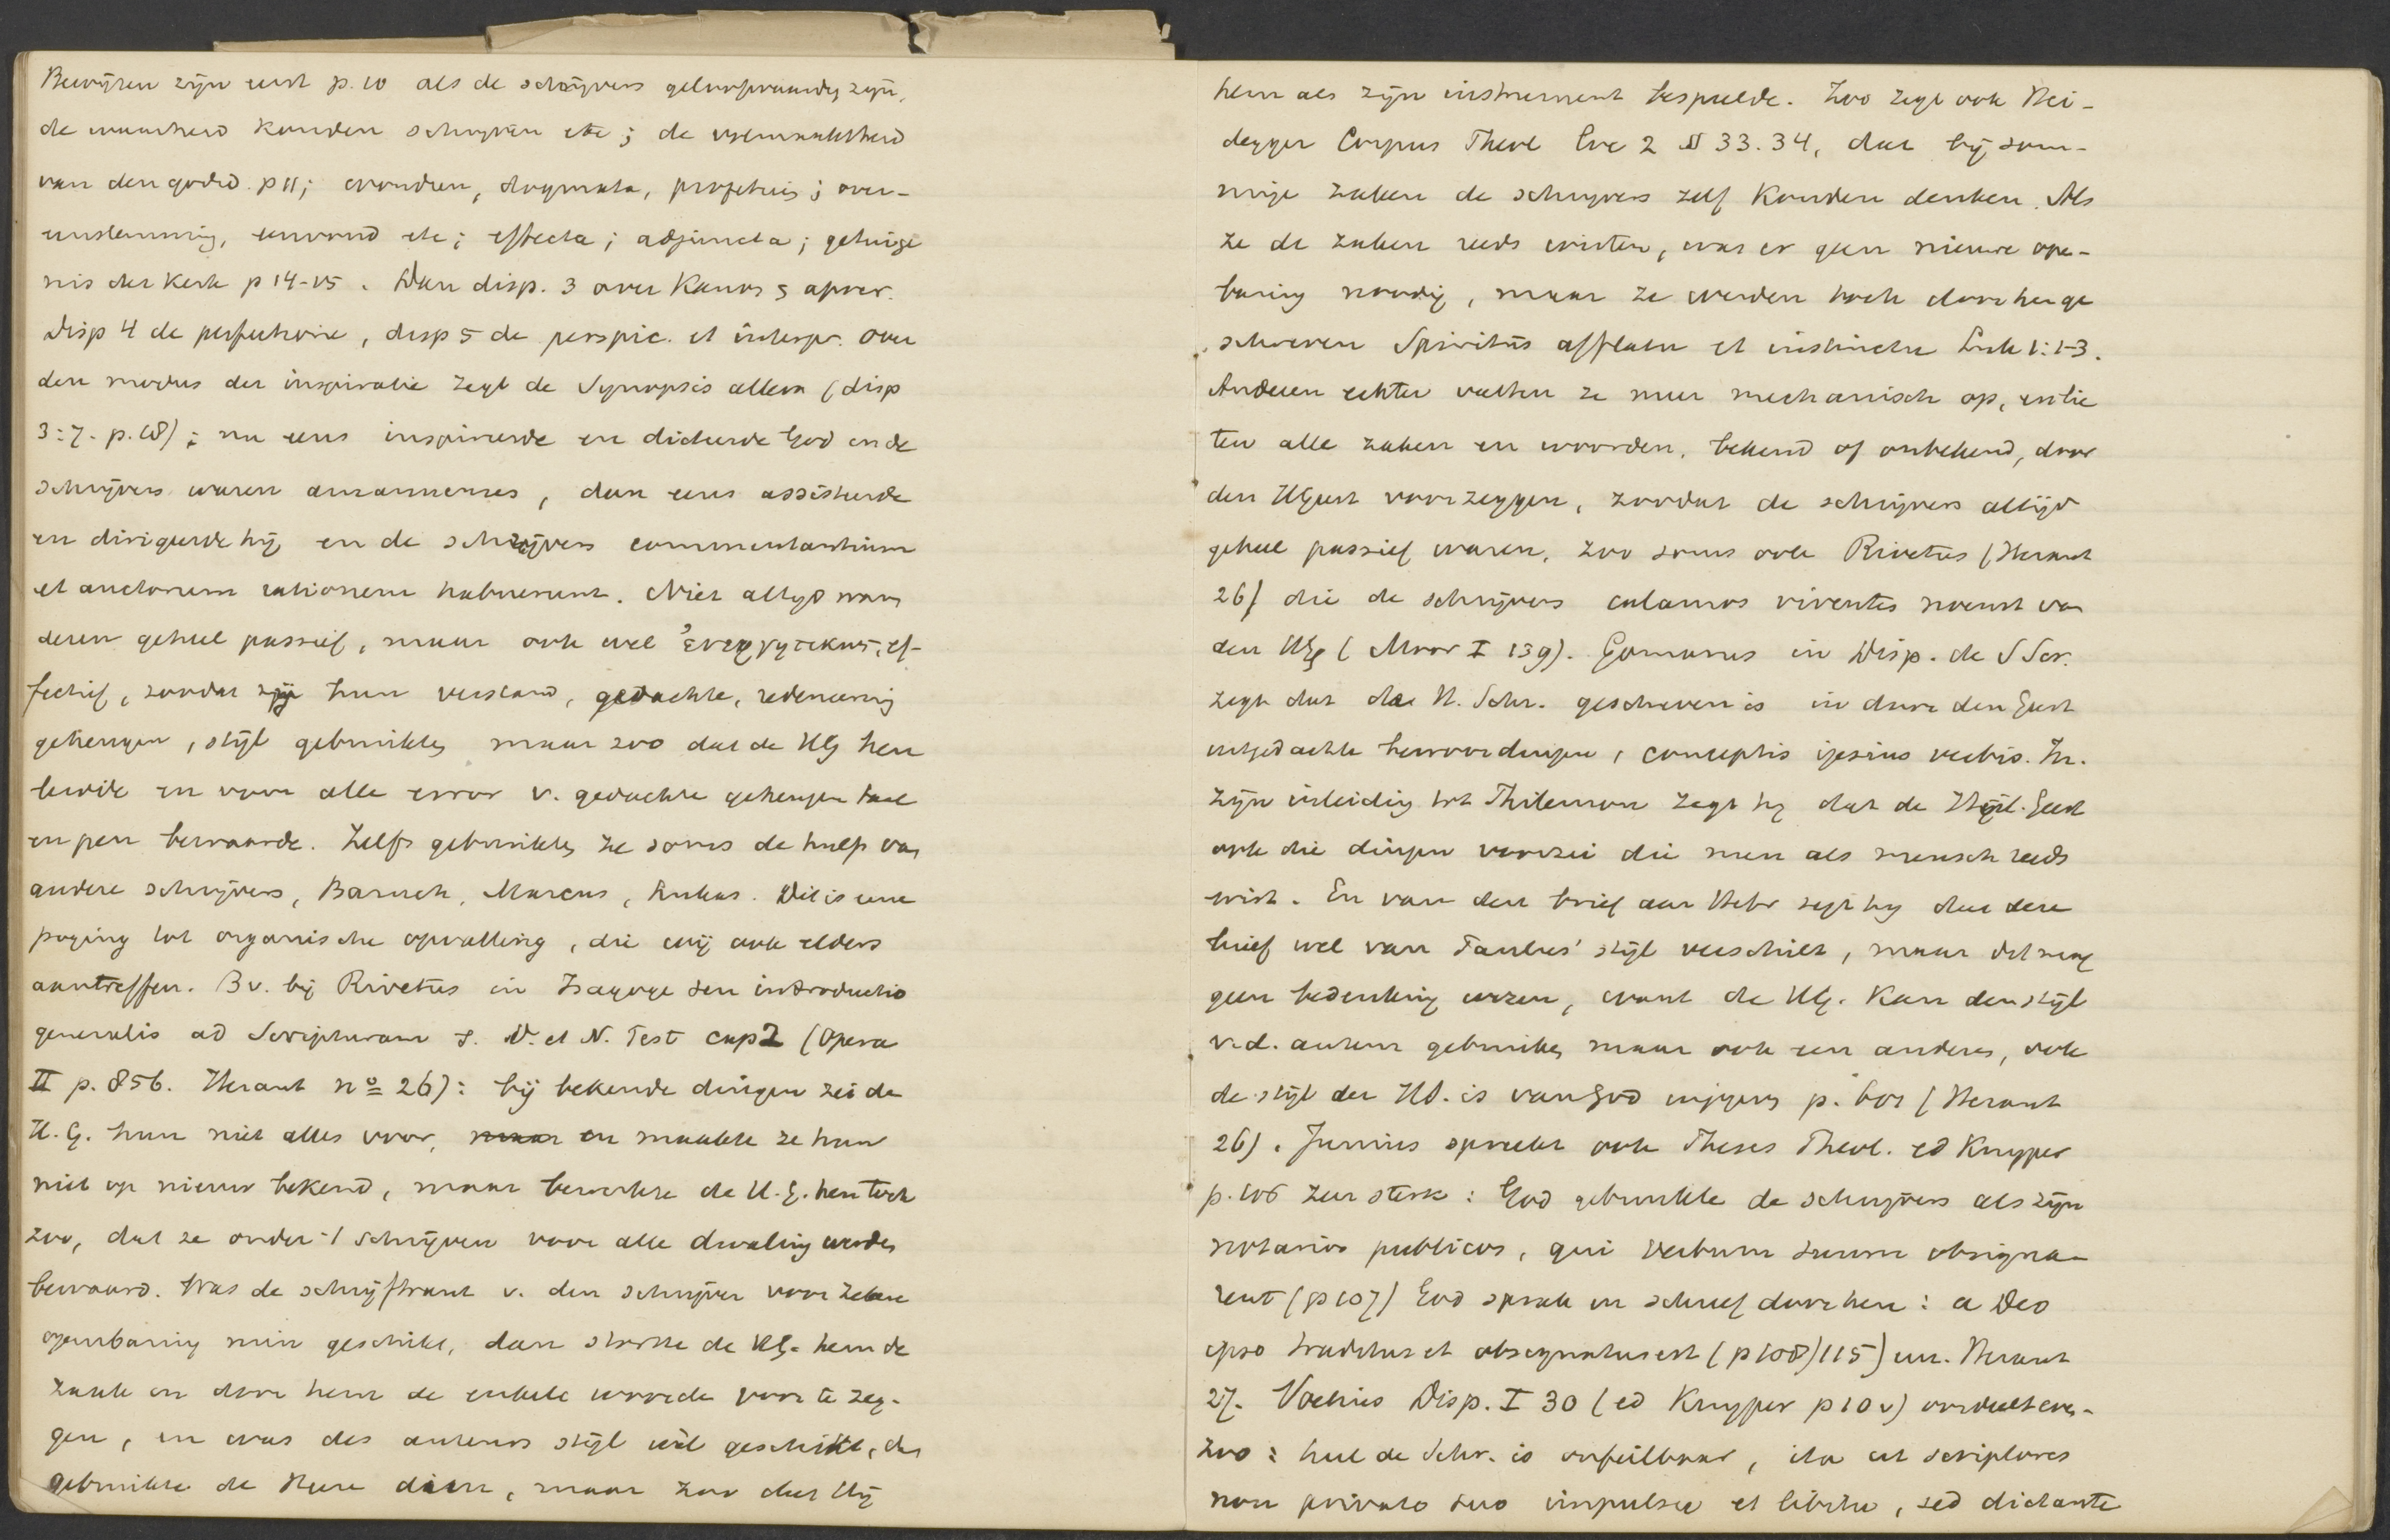 Bewijzen zijn eerst p. 10 als de schrijvers geloofwaardig zijn,
de waarheid konden schrijven etc; de volmaaktheid
van den godsd. p 11; wonderen, dogmata, profetieis; over-
eenstemming, eenvoud etc; effecta; adjuncta; getuige
nis der kerk p 14-15. Dan disp. 3 over Kanon & apocr.
Disp 4 de perfectione, disp 5 de perspic. et interpr. Over
den modus der inspiratie zegt de Synopsis alleen (disp
3:7. p. 18): nu eens inspireerde en dicteerde God en de
schrijvers waren amanuenses, dan eens assisteerde
en dirigeerde hij en de schrijvers commentantium
et auctorum rationem habuerunt. Niet altijd waren
deren geheel passief, maar ook wel ἐνεργητικως, ef-
fectief, zoodat zij hun verstand, gedachte, redeneering
geheugen, stijl gebruikten maar zoo dat de HG hen
leidde en voor alle error v. gedachte geheugen taal
en pen bewaarde. Zelfs gebruikten ze soms de hulp van
andere schrijvers, Baruch, Marcus, Lukas. Dit is eene
poging tot organische opvatting, die wij ook elders
aantreffen. Bv. bij Rivetus in Isagoge seu introductio
generalis ad Scripturam S. V. et N. Test cap 2 (Opera
II p. 856. Heraut no 26): bij bekende dingen zei de
H. G. hun niet alles voor, maar en maakte ze hun
niet op nieuw bekend, maar bewerkte de H. G. hen toch
zoo, dat ze onder 't schrijven voor alle dwaling werden
bewaard. Was de schrijftrant v. den schrijver voor zekere
openbaring min geschikt, dan sterkte de HG. hem de
zaak en door hem de enkele woorden voor te zeg-
gen, en was des auteurs stijl wèl geschikt, dan
gebruikte de Heere dien, maar zoo dat Hij
hem als zijn instrument bespeelde. Zoo zegt ook Hei-
degger Corpus Theol Loc 2 § 33. 34, dat bij som-
mige zaken de schrijvers zelf konden denken. Als
ze de zaken reeds wisten, was er geen nieuwe open-
baring noodig, maar ze werden toch door hen ge
schreven Spiritûs afflatu et instinctu Luk 1:1-3.
Anderen echter vatten ze meer mechanisch op, en lie
ten alle zaken en woorden, bekend of onbekend, door
den HGeest voorzeggen, zoodat de schrijvers altijd
geheel passief waren, zoo soms ook Rivetus (Heraut
26) die de schrijvers calamos viventes noemt van
den HG (Moor I 139). Gomarus in Disp. de S Scr.
zegt dat de H. Schr. geschreven is in door den Geest
uitgedachte bewoordingen, conceptis ipsius verbis. In
zijn inleiding tot Philemon zegt hij dat de Heil. Geest
ook die dingen voorzei die men als mensch reeds
wist. En van den brief aan Hebr zegt hij dat deze
brief wel van Paulus' stijl verschilt, maar dit mag
geen bedenking wezen, want de HG. kan den stijl
v. d. auteur gebruiken maar ook een anderen, ook
de stijl der HS. is van God ingegeven p. 601 (Heraut
26). Junius spreekt ook Theses Theol. ed Kuyper
p. 106 zeer sterk: God gebruikte de schrijvers als zijn
notarios publicos, qui verbum suum obsigna-
rent (p 107) God sprak en schreef door hen: a Deo
ipso traditus et obsignatus est (p 108/115) enz. Heraut
27. Voetius Disp. I 30 (ed Kuyper p 10v) oordeelt even-
zoo: heel de Schr. is onfeilbaar, ita ut scriptores
non privato suo impulsu et libitu, sed dictante